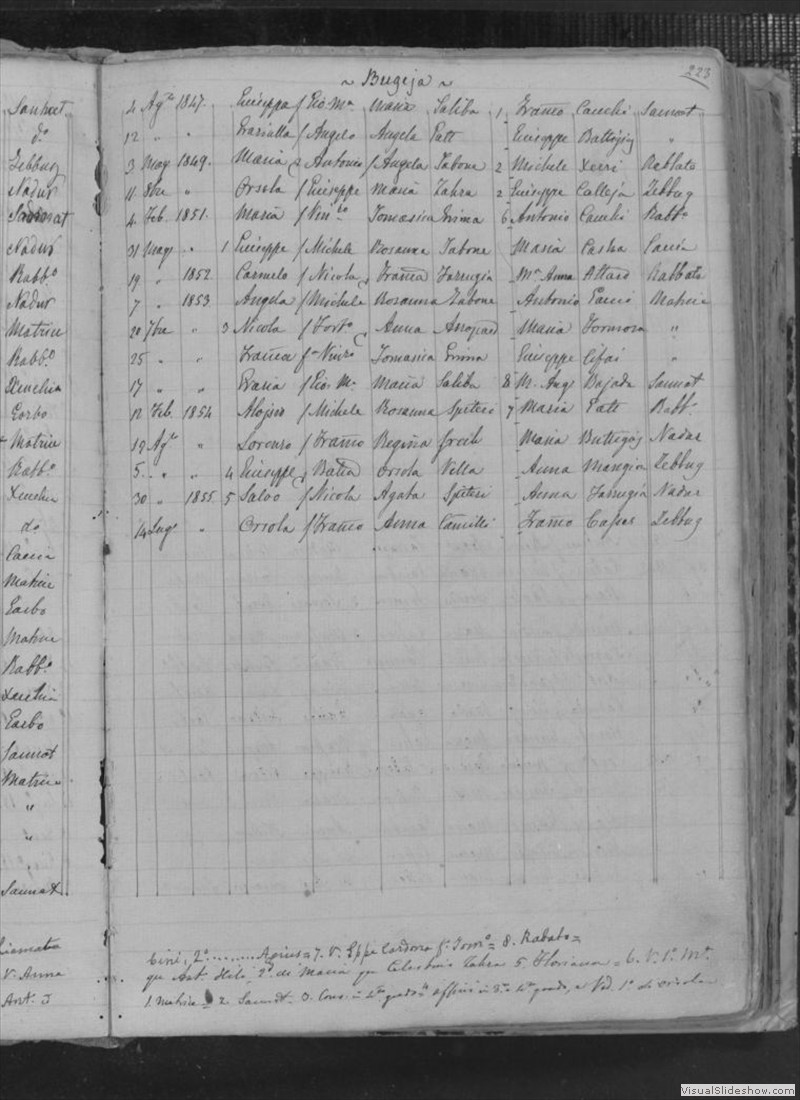 Sannat
do
Zebbug
Nadur
Sannat
Nadur
Rabb.o
Nadur
Matrice
Rabb.o
Xeuchia
Garbo
Matrice
Rabb.o
Xeuchia
do
Caccia
Matrice
Garbo
Matrice
Rabb.o
Xeuchia
Garbo
Sannat
Matrice
"
"
Sannat
V. Anna
Ant. J
223
~ Bugeja ~
4 Ag.to 1847. Giuseppa f Gio M.a Maria Saliba 1 Franco Cauchi Sannat
12 " " Graziulla f Angelo Angela Gatt Giuseppe Buttigieg "
3 May 1849. Maria Antonio f Angela Tabone 2 Michele Xuiri Rabbato
11 8bre " Orsola f Giuseppe Maria Zahra 2 Giuseppe Calleja Zebbug
4 Feb. 1851. Maria f Vin.zo Tomasica Grima 6 Antonio Cauchi Rabb.o
31 May " 1 Giuseppe f Michele Rosanna Tabone Maria Casha Caccia
19 " 1852 Carmelo f Nicola Franca Farrugia M.a Anna Attard Rabbato
7 " 1853 Angela f Michele Rosanna Tabone Antonio Matrice
20 7bre " 3 Nicola f Fort.o Anna Maria Formosa "
25 " " Franca f Vinzo Tomasica Grima Giuseppe Cefai "
17 " " Grazia f Gio M.a Maria Saliba 8 M. Ang Bajada Sannat
12 Feb. 1854 Alojsio f Michele Rosanna Spiteri 7 Maria Gatt Rabb.o
12 Ag.to " Lorenzo f Franco Regina Grech Maria Buttigieg Nadur
5 " " 4 Giuseppe Batta Orsola Vella Anna Mangion Zebbug
30 " 1855 5 Salvo f Nicola Agata Spiteri Anna Farrugia Nadur
14 Lug.o " Orsola f Franco Anna Camilleri Franco Zebbug
2.o 7. V. Gppe Cardona f. 8. Rabato =
Ant. 2.o di Maria Celestino Zahra 5. Floriana = 6. V. 1.o M.a
1. Matrice 2 Sannat. 3. Cons. affini Ved. 1.o di
VisualSlideshow.com